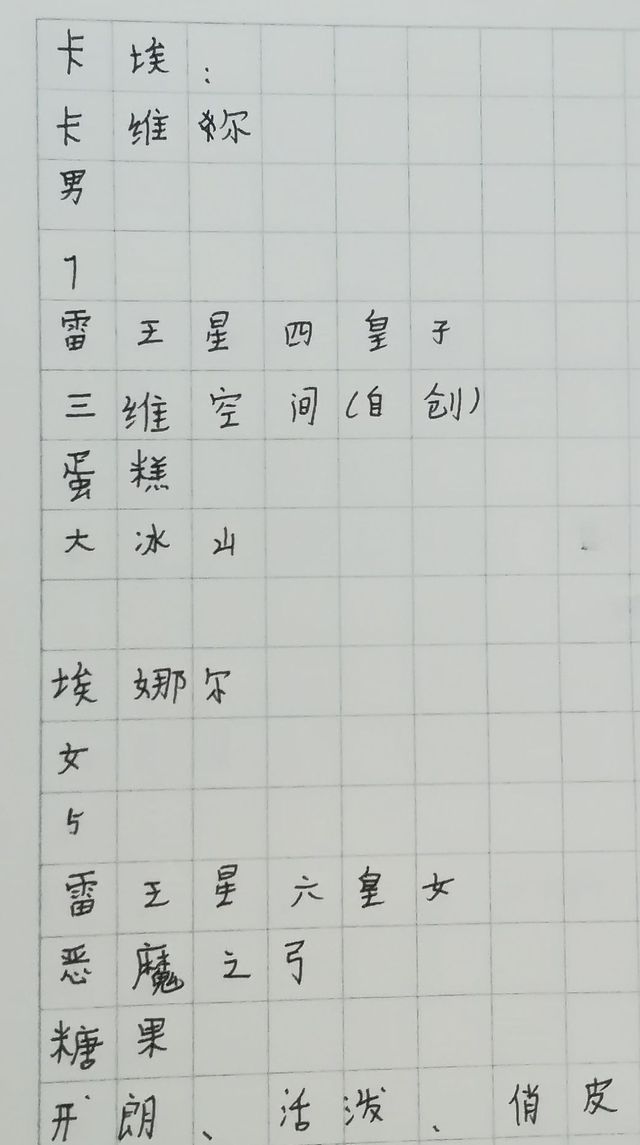 卡埃：
卡维尔
男
7
雷王星四皇子
三维空间(自创)
蛋糕
大冰山
埃娜尔
女
5
雷王星六皇女
恶魔之弓
糖果
开朗、活泼、俏皮